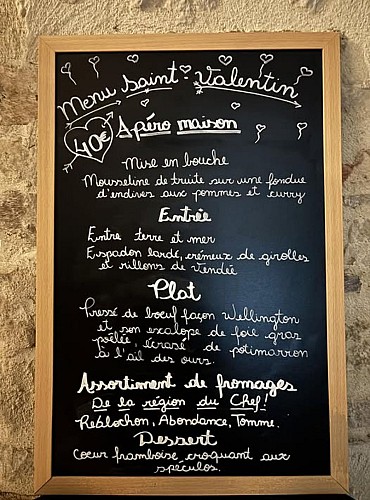 Menu Saint-Valentin
40€
Apéro maison
Mise en bouche
Mousseline de truite sur une fondue
d'endives aux pommes et curry
Entrée
Entre terre et mer
Espadon lardé, crémeux de girolles
et rillons de Vendée
Plat
Pressé de boeuf façon Wellington
et son escalope de foie gras
poêlée, écrasé de potimarron
à l'ail des ours.
Assortiment de fromages
De la région du Chef!
Reblochon, Abondance, Tomme.
Dessert
Coeur framboise, croquant aux
spéculos.